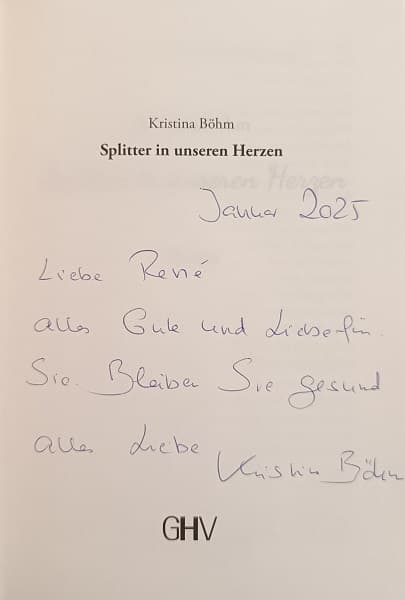 Kristina Böhm
Splitter in unseren Herzen
Januar 2025
Liebe René
alles Gute und Liebe für
Sie. Bleiben Sie gesund
alles Liebe
Kristina Böhm
GHV